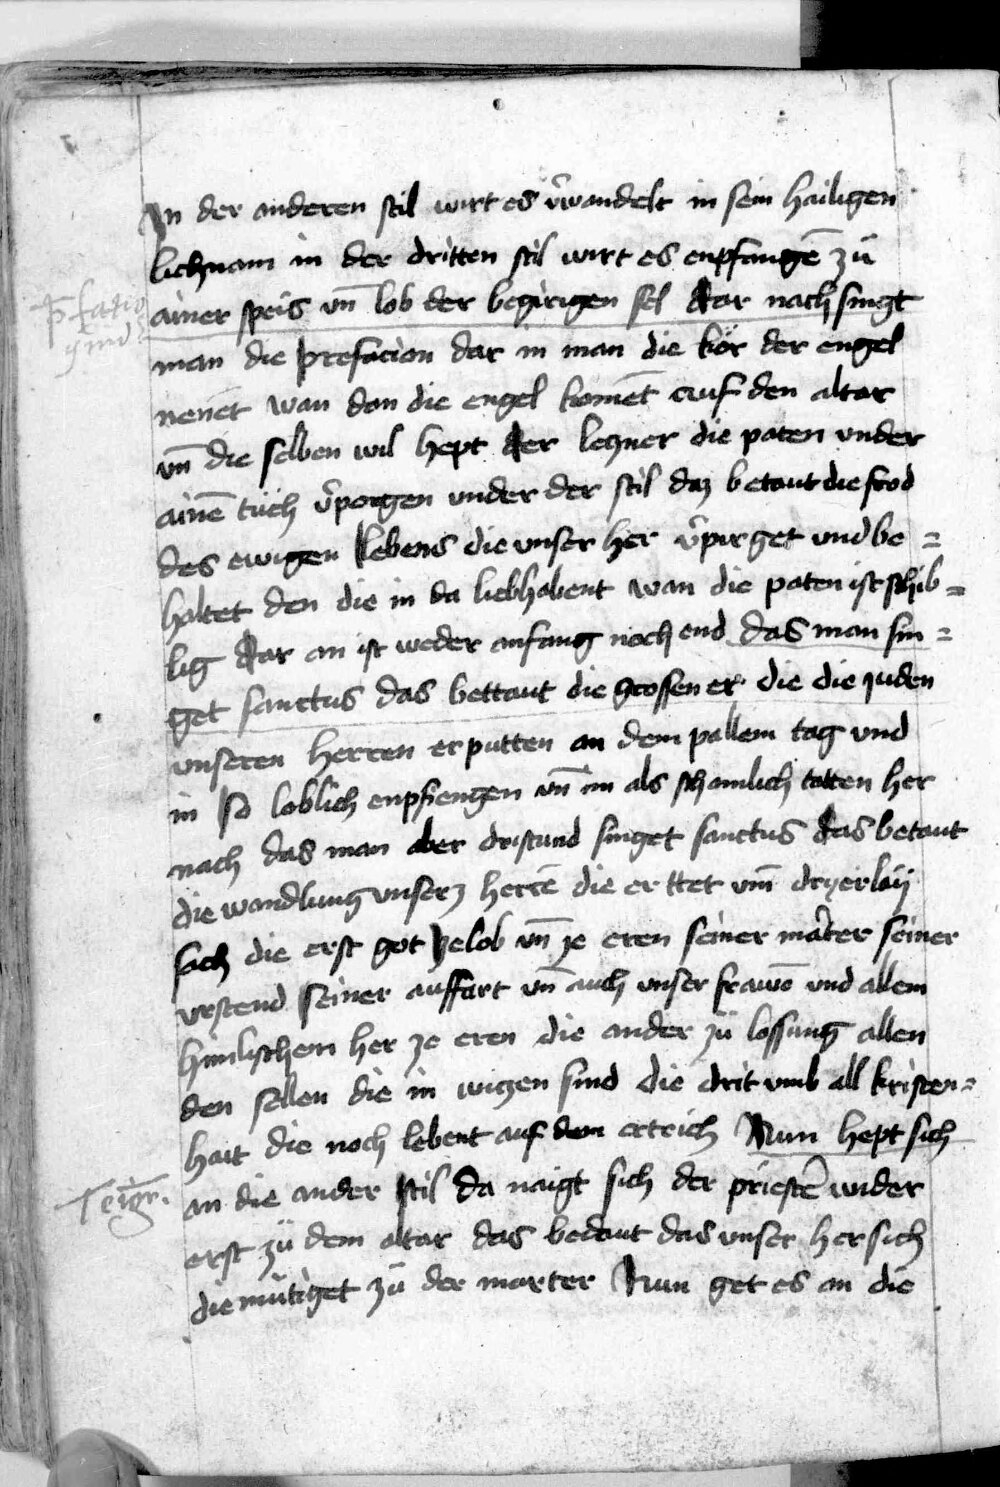 In der anderen stil wirt es v̄wandelt in sein hailigen
lichnam in der dritten stil wirt es enpfangē zů
ainer speis vn̄ lob der begirigen sel Dar nach singt
man die prefacion dar in man die kör der engel
nenēt wan dan die engel komēt auf den altar
vn̄ die selben wil hept der leczner die paten under
ainē tůch v̄porgen under der stil daz betaut die frod
des ewigen lebens die unser her v̄pirget und be =
haltet den die in da liebhabent wan die paten ist schib =
lig Dar an ist weder anfang noch end das man sin =
get sanctus das bettaut die grossen er die die juden
unseren herren erputten an dem pallem tag und
in so loblich enpfiengen vn̄ im als schamlich totten her
nach das man aber dristund singet sanctus das betaut
die wandlung unserz herrē die er ttet vm̄ dryerlaÿ
sach die erst got ze lob vn̄ ze eren seiner marter seiner
urstend seiner auffart vn̄ auch unser frawē und allem
himlischem her ze eren die ander zů lossung allen
den sellen die in wiczen sind die drit umb all kristen =
hait die noch lebent auf dem ertrich Nun hept sich
an die ander stil da naigt sich der priestē wider
erst zů dem altar das bedaut das unser her sich
diemůtiget zů der marter Nun get es an die
Te igr.